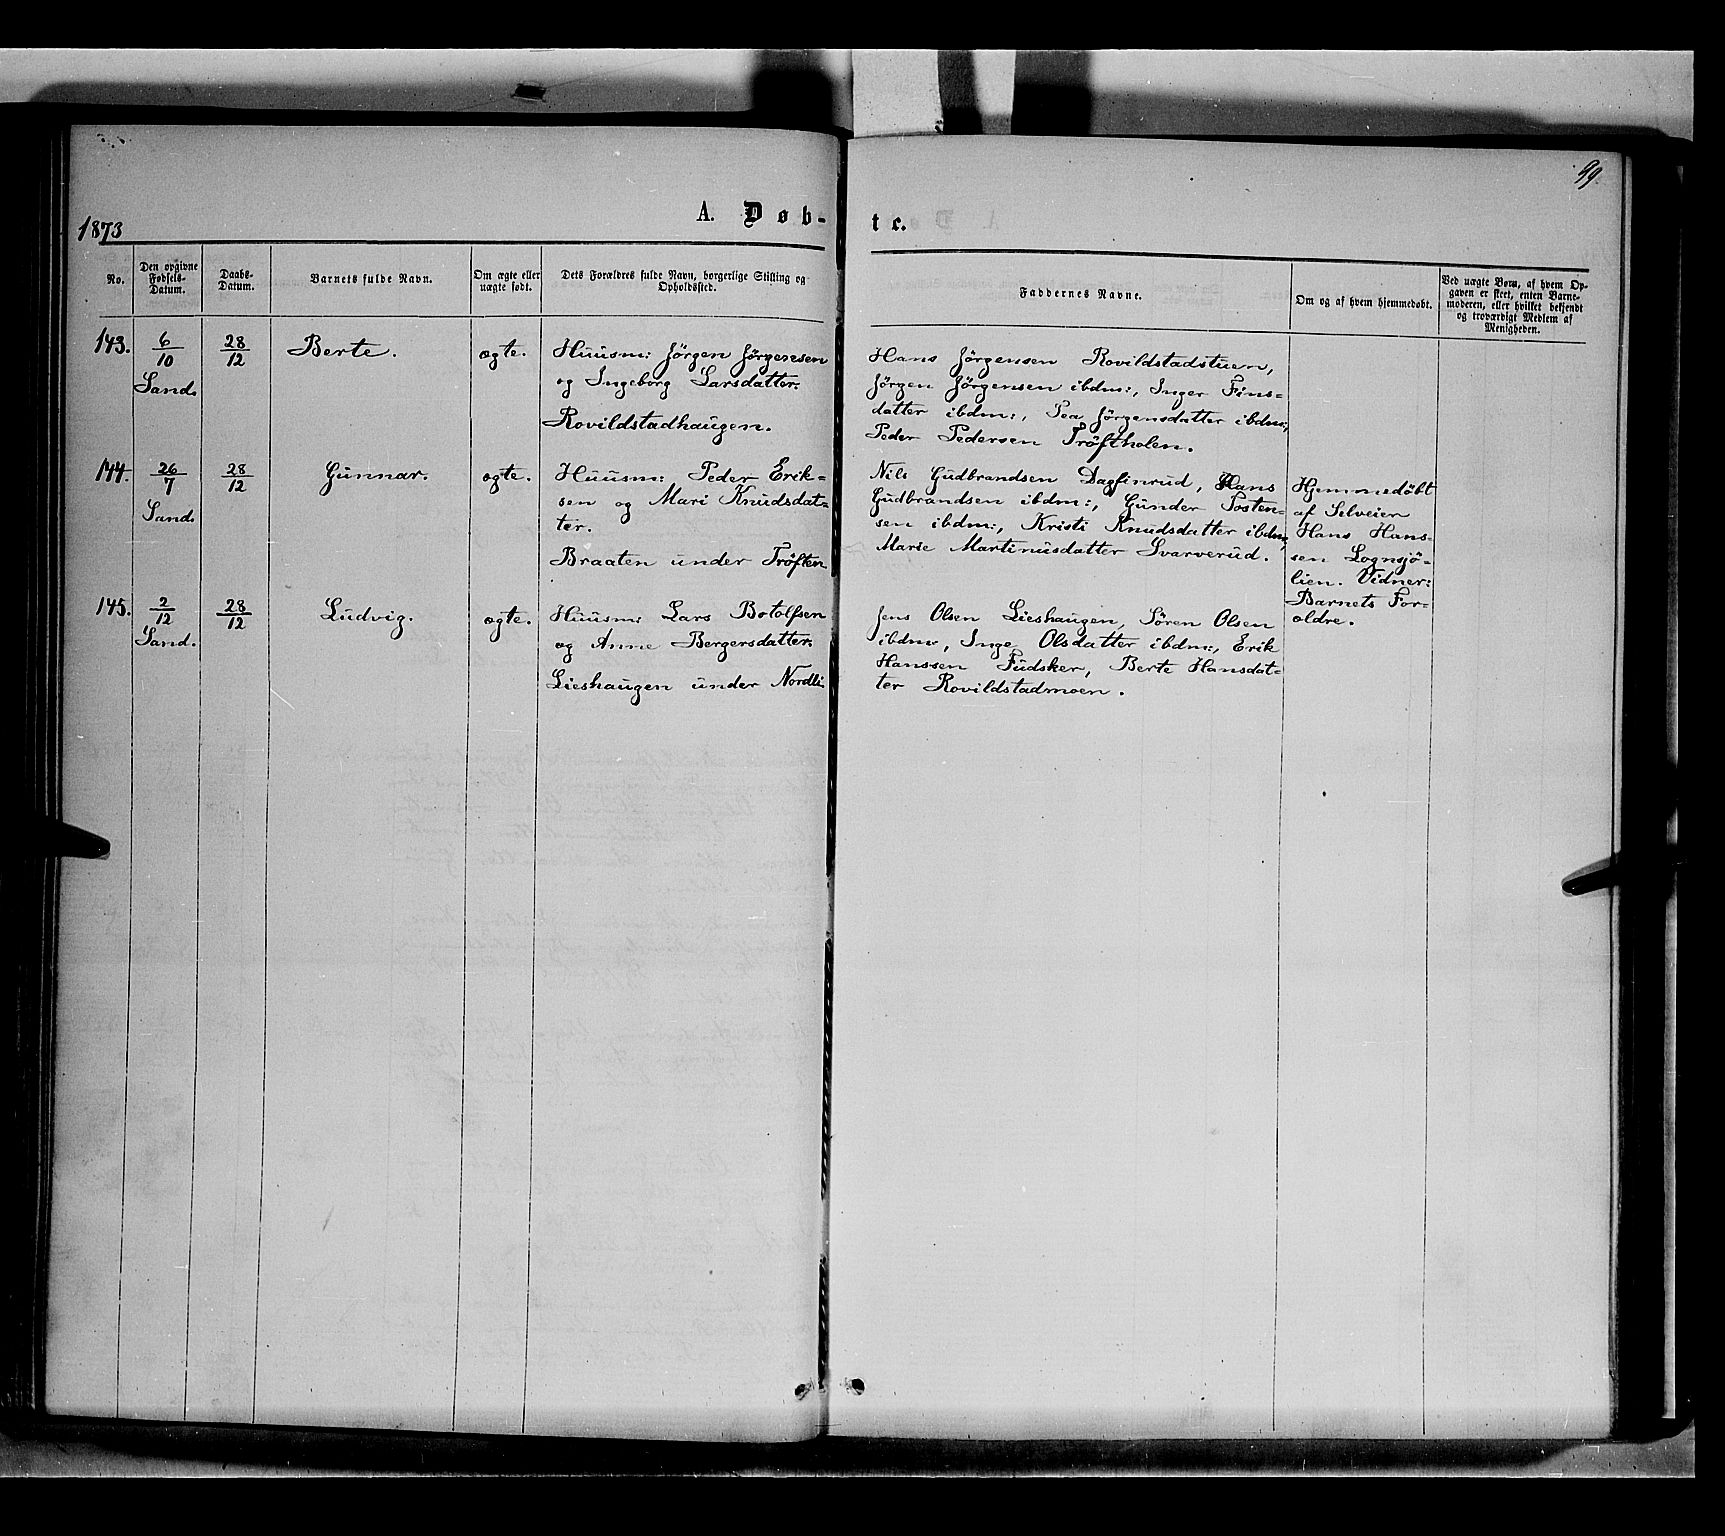 99.
1873
A. Døb-
te.
No.
Den opgivne
Fødsels-
Datum.
Daabs-
Datum.
Barnets fulde Navn.
Om ægte eller
uægte født.
Dets Forældres fulde Navn, borgerlige Stilling og
Opholdssted.
Faddernes Navne.
Om og af hvem hjemmedøbt.
Ved uægte Børn, af hvem Op-
gaven er skeet, enten Barne-
moderen, eller hvilket bekjendt
og troværdigt Medlem af
Menigheden.
143.
6/10
Sand.
28/12
Berte.
ægte.
Huusm: Jörgen Jörgensen
og Ingeborg Larsdatter.
Rovildstadhaugen.
Hans Jörgensen Rovildstadstuen,
Jörgen Jörgensen ibdm:, Inger Fins=
datter ibdm:, Pea Jörgensdatter ibdm:,
Peder Pedersen Tröftholen.
144.
26/7
Sand.
28/12
Gunnar.
ægte.
Huusm: Peder Erik=
sen og Mari Knudsdat=
ter.
Braaten under Tröften
Nils Gudbrandsen Dagfinrud, Hans
Gudbrandsen ibdm:, Gunder Tosten=
sen ibdm:, Kristi Knudsdatter ibdm,
Marie Martinusdatter Svarverud.
Hjemmedöbt
af Selveier
Hans Hans=
sen Lognsjö=
lien. Vidner:
Barnets For=
ældre.
145.
2/12
Sand.
28/12
Ludvig.
ægte.
Huusm: Lars Botolfsen
og Anne Bergersdatter.
Lieshaugen under Nordli
Jens Olsen Lieshaugen, Sören Olsen
ibdm:, Inge Olsdatter ibdm:, Erik
Hanssen Fudsker, Berte Hansdat=
ter Rovildstadmoen.